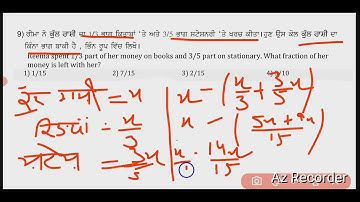 9) ਰੀਮਾ ਨੇ ਕੁੱਲ ਰਾਸ਼ੀ ਦਾ 1/3 ਭਾਗ ਕਿਤਾਬਾਂ 'ਤੇ ਅਤੇ 3/5 ਭਾਗ ਸਟੇਸ਼ਨਰੀ 'ਤੇ ਖਰਚ ਕੀਤਾ।ਹੁਣ ਉਸ ਕੋਲ ਕੁੱਲ ਰਾਸ਼ੀ ਦਾ
ਕਿੰਨਾ ਭਾਗ ਬਾਕੀ ਹੈ , ਭਿੰਨ ਰੂਪ ਵਿੱਚ ਲਿਖੋ।
Reema spent 1/3 part of her money on books and 3/5 part on stationary. What fraction of her
money is left with her?
1) 1/15 2) 7/15 3) 2/15 /10
ਕੁੱਲ ਰਾਸ਼ੀ = x x - (x/3 + 3/5 x)
= x/3 x - (5x + 9x)/15
= 3x/5 x/1 - 14x/15
Az Recorder